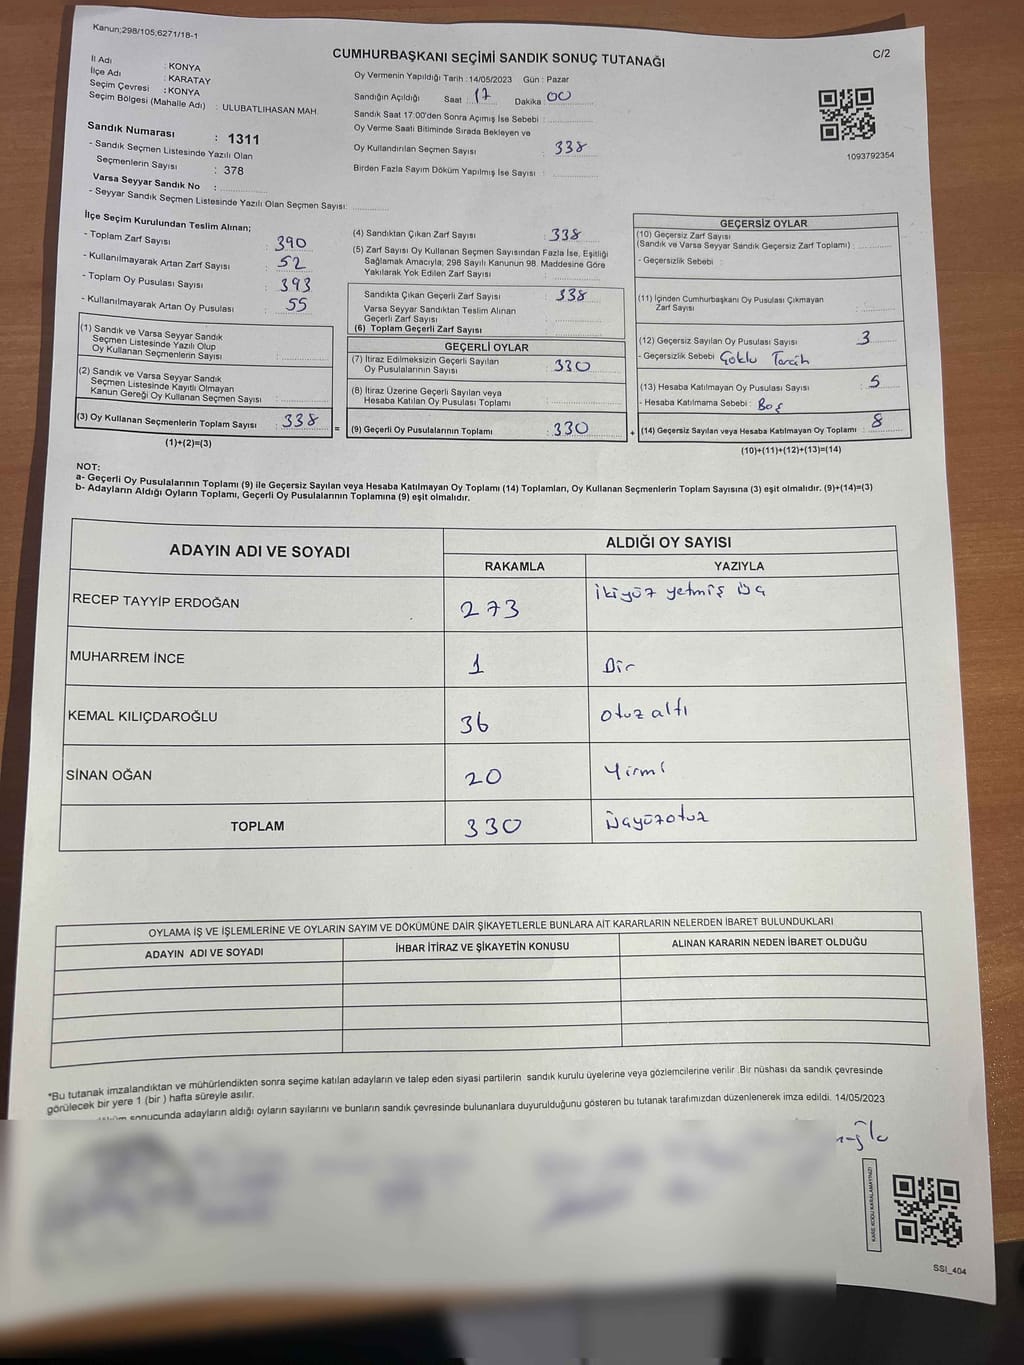 Kanun;298/105,6271/18-1
CUMHURBAŞKANI SEÇİMİ SANDIK SONUÇ TUTANAĞI
C/2
İl Adı : KONYA
İlçe Adı : KARATAY
Seçim Çevresi : KONYA
Seçim Bölgesi (Mahalle Adı) : ULUBATLIHASAN MAH.
Sandık Numarası : 1311
- Sandık Seçmen Listesinde Yazılı Olan
Seçmenlerin Sayısı : 378
Varsa Seyyar Sandık No :
- Seyyar Sandık Seçmen Listesinde Yazılı Olan Seçmen Sayısı:
Oy Vermenin Yapıldığı Tarih :14/05/2023 Gün : Pazar
Sandığın Açıldığı Saat : 17 Dakika : 00
Sandık Saat 17.00'den Sonra Açımış İse Sebebi :
Oy Verme Saati Bitiminde Sırada Bekleyen ve
Oy Kullandırılan Seçmen Sayısı : 338
Birden Fazla Sayım Döküm Yapılmış İse Sayısı :
1093792354
İlçe Seçim Kurulundan Teslim Alınan;
- Toplam Zarf Sayısı : 390
- Kullanılmayarak Artan Zarf Sayısı : 52
- Toplam Oy Pusulası Sayısı : 393
- Kullanılmayarak Artan Oy Pusulası : 55
(1) Sandık ve Varsa Seyyar Sandık
Seçmen Listesinde Yazılı Olup
Oy Kullanan Seçmenlerin Sayısı :
(2) Sandık ve Varsa Seyyar Sandık
Seçmen Listesinde Kayıtlı Olmayan
Kanun Gereği Oy Kullanan Seçmen Sayısı :
(3) Oy Kullanan Seçmenlerin Toplam Sayısı : 338
(1)+(2)=(3)
(4) Sandıktan Çıkan Zarf Sayısı : 338
(5) Zarf Sayısı Oy Kullanan Seçmen Sayısından Fazla İse, Eşitliği
Sağlamak Amacıyla; 298 Sayılı Kanunun 98. Maddesine Göre
Yakılarak Yok Edilen Zarf Sayısı :
Sandıkta Çıkan Geçerli Zarf Sayısı : 338
Varsa Seyyar Sandıktan Teslim Alınan
Geçerli Zarf Sayısı :
(6) Toplam Geçerli Zarf Sayısı :
GEÇERLİ OYLAR
(7) İtiraz Edilmeksizin Geçerli Sayılan
Oy Pusulalarının Sayısı : 330
(8) İtiraz Üzerine Geçerli Sayılan veya
Hesaba Katılan Oy Pusulası Toplamı :
= (9) Geçerli Oy Pusulalarının Toplamı : 330 +
GEÇERSİZ OYLAR
(10) Geçersiz Zarf Sayısı
(Sandık ve Varsa Seyyar Sandık Geçersiz Zarf Toplamı) :
- Geçersizlik Sebebi :
(11) İçinden Cumhurbaşkanı Oy Pusulası Çıkmayan
Zarf Sayısı :
(12) Geçersiz Sayılan Oy Pusulası Sayısı : 3
- Geçersizlik Sebebi : Çoklu Tercih
(13) Hesaba Katılmayan Oy Pusulası Sayısı : 5
- Hesaba Katılmama Sebebi : Boş
(14) Geçersiz Sayılan veya Hesaba Katılmayan Oy Toplamı : 8
(10)+(11)+(12)+(13)=(14)
NOT:
a- Geçerli Oy Pusulalarının Toplamı (9) ile Geçersiz Sayılan veya Hesaba Katılmayan Oy Toplamı (14) Toplamları, Oy Kullanan Seçmenlerin Toplam Sayısına (3) eşit olmalıdır. (9)+(14)=(3)
b- Adayların Aldığı Oyların Toplamı, Geçerli Oy Pusulalarının Toplamına (9) eşit olmalıdır.
ADAYIN ADI VE SOYADI
ALDIĞI OY SAYISI
RAKAMLA YAZIYLA
RECEP TAYYİP ERDOĞAN 273 ikiyüz yetmiş üç
MUHARREM İNCE 1 Bir
KEMAL KILIÇDAROĞLU 36 otuz altı
SİNAN OĞAN 20 Yirmi
TOPLAM 330 üçyüzotuz
OYLAMA İŞ VE İŞLEMLERİNE VE OYLARIN SAYIM VE DÖKÜMÜNE DAİR ŞİKAYETLERLE BUNLARA AİT KARARLARIN NELERDEN İBARET BULUNDUKLARI
ADAYIN ADI VE SOYADI İHBAR İTİRAZ VE ŞİKAYETİN KONUSU ALINAN KARARIN NEDEN İBARET OLDUĞU
*Bu tutanak imzalandıktan ve mühürlendikten sonra seçime katılan adayların ve talep eden siyasi partilerin sandık kurulu üyelerine veya gözlemcilerine verilir .Bir nüshası da sandık çevresinde
görülecek bir yere 1 (bir ) hafta süreyle asılır.
sonucunda adayların aldığı oyların sayılarını ve bunların sandık çevresinde bulunanlara duyurulduğunu gösteren bu tutanak tarafımızdan düzenlenerek imza edildi. 14/05/2023
KARE KODU KARALAMAYINIZ!
SSI_404